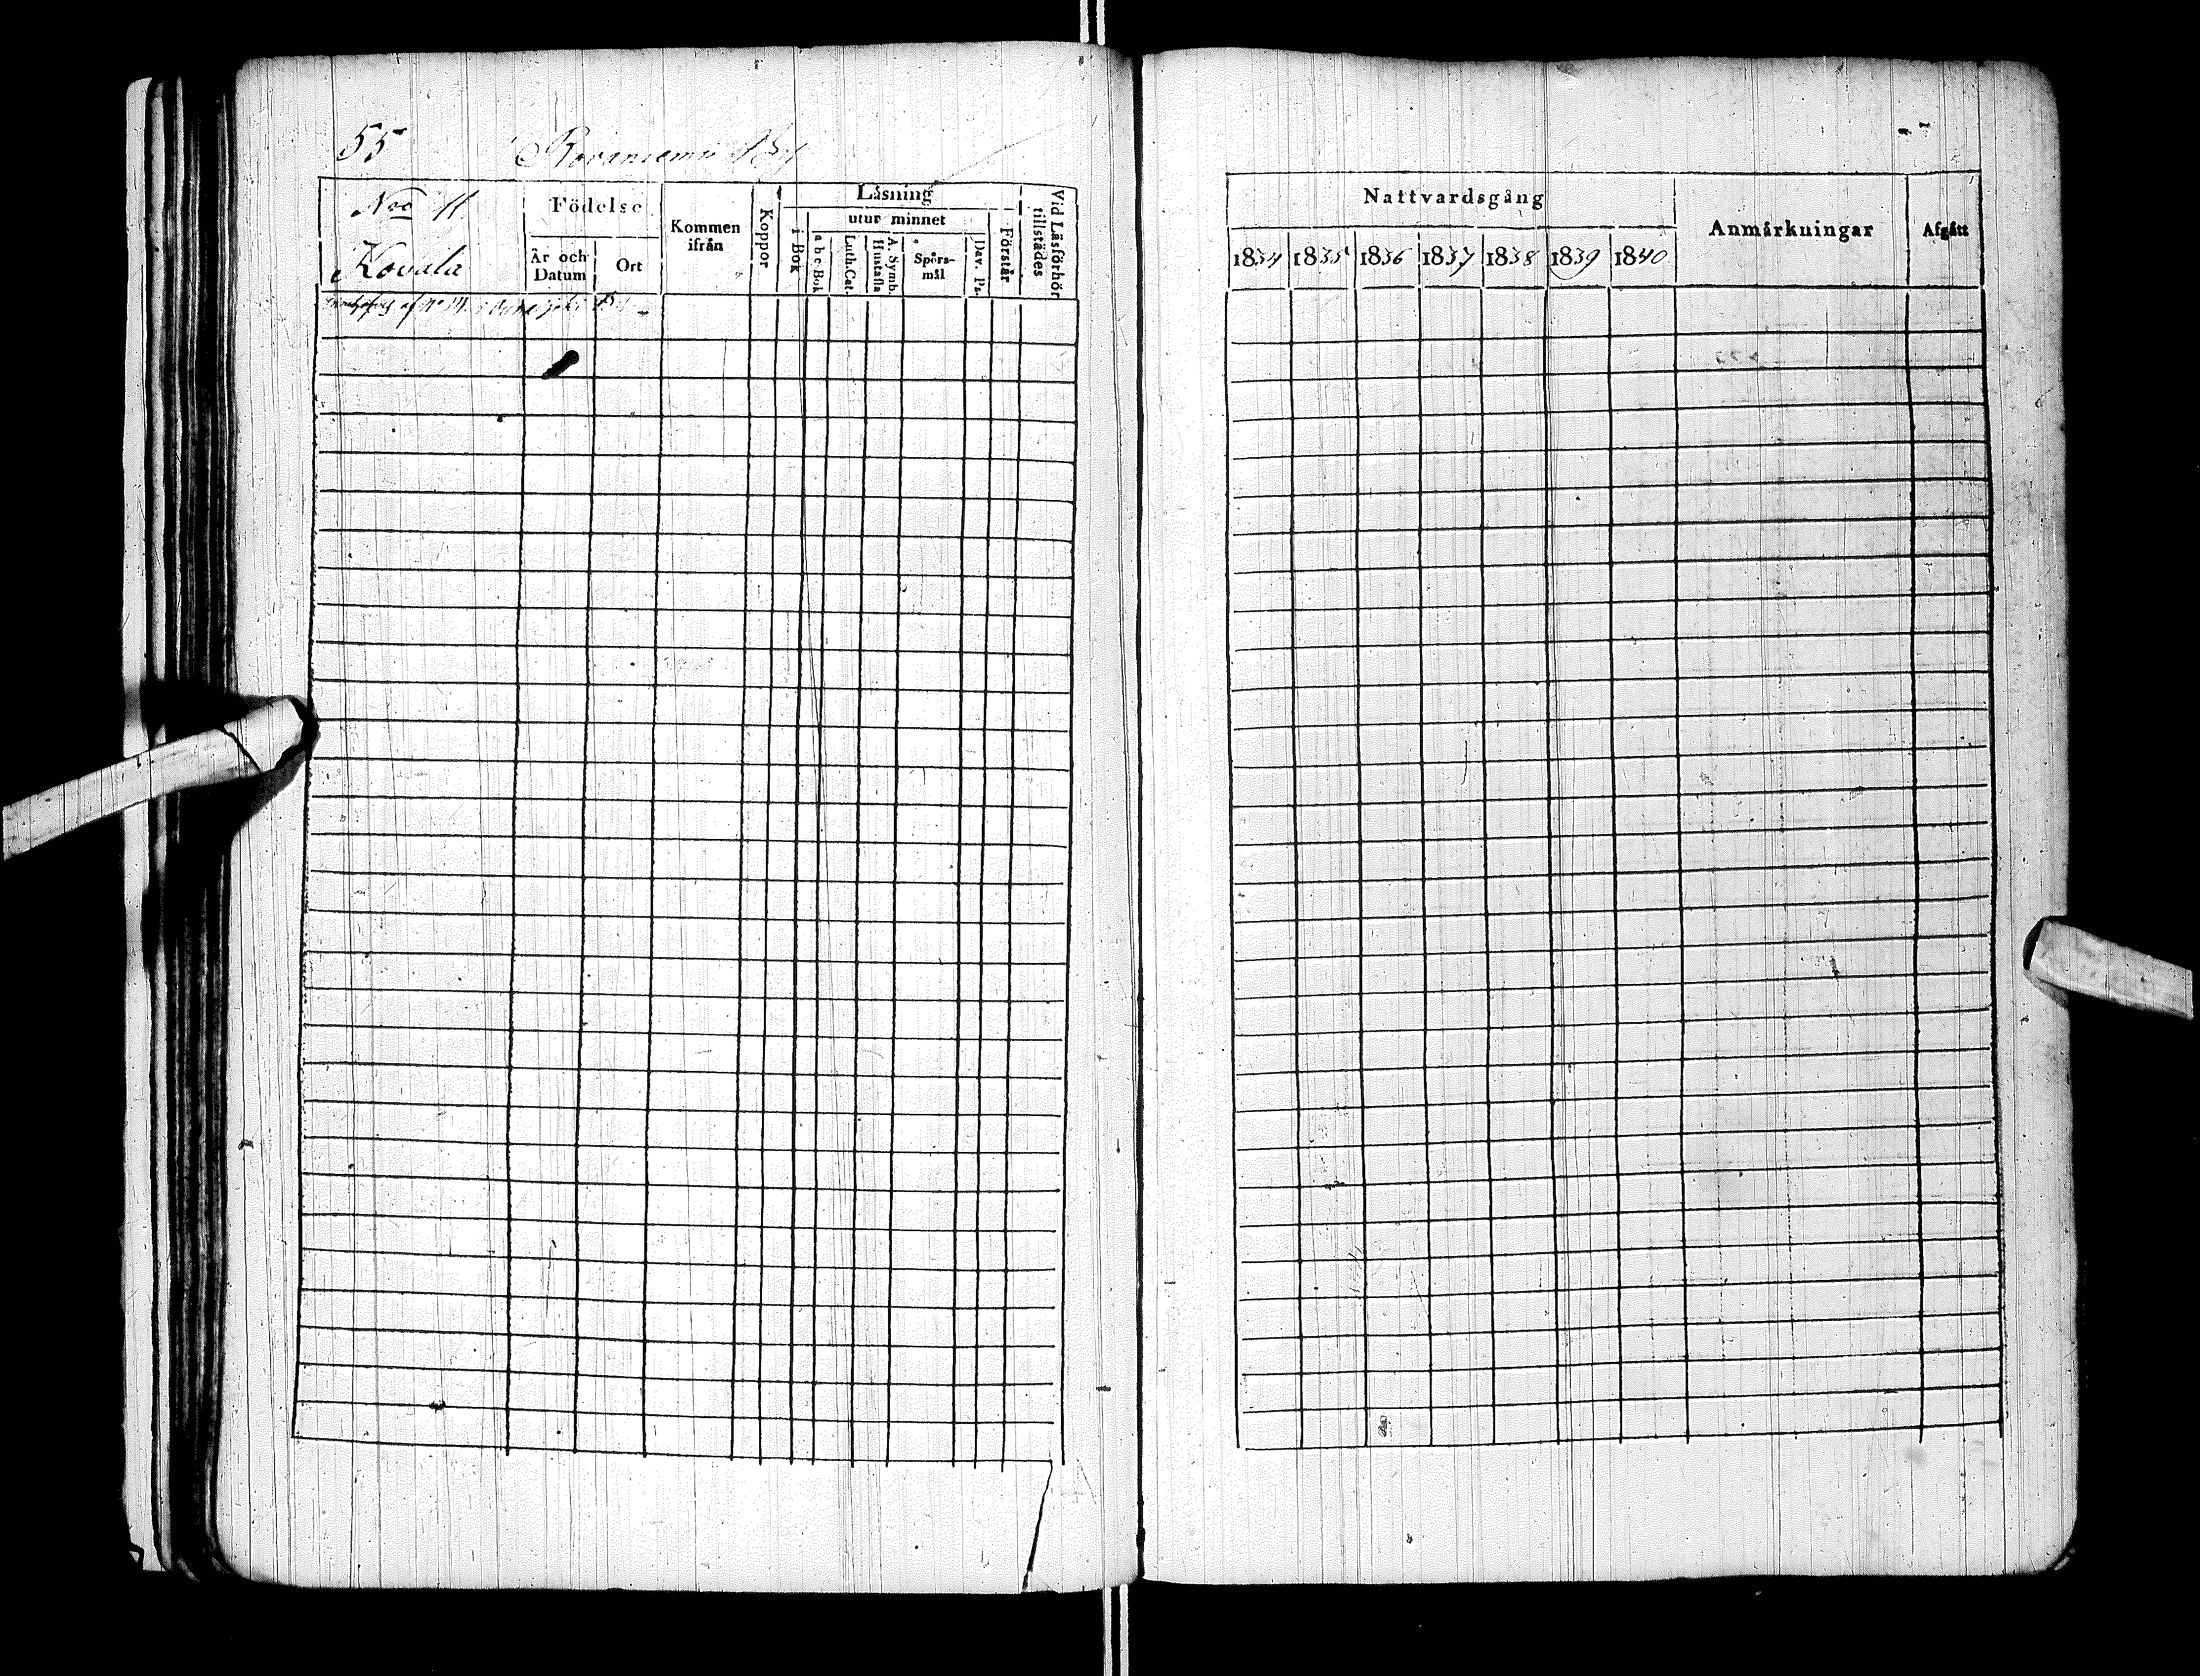 55
Rovaniemi By
No 11.
Kovala
Födelse
År och Datum
Ort
Kommen ifrån
Koppor
Läsning
i Bok
utur minnet
a b c Bok
Luth. Cat.
A. Symb. Hustafla
Spörs-mål
Dav. Ps.
Förstår
Vid Läsförhör tillstädes
af No 14. i
Nattvardsgång
1834 1835 1836 1837 1838 1839 1840
Anmärkningar
Afgått